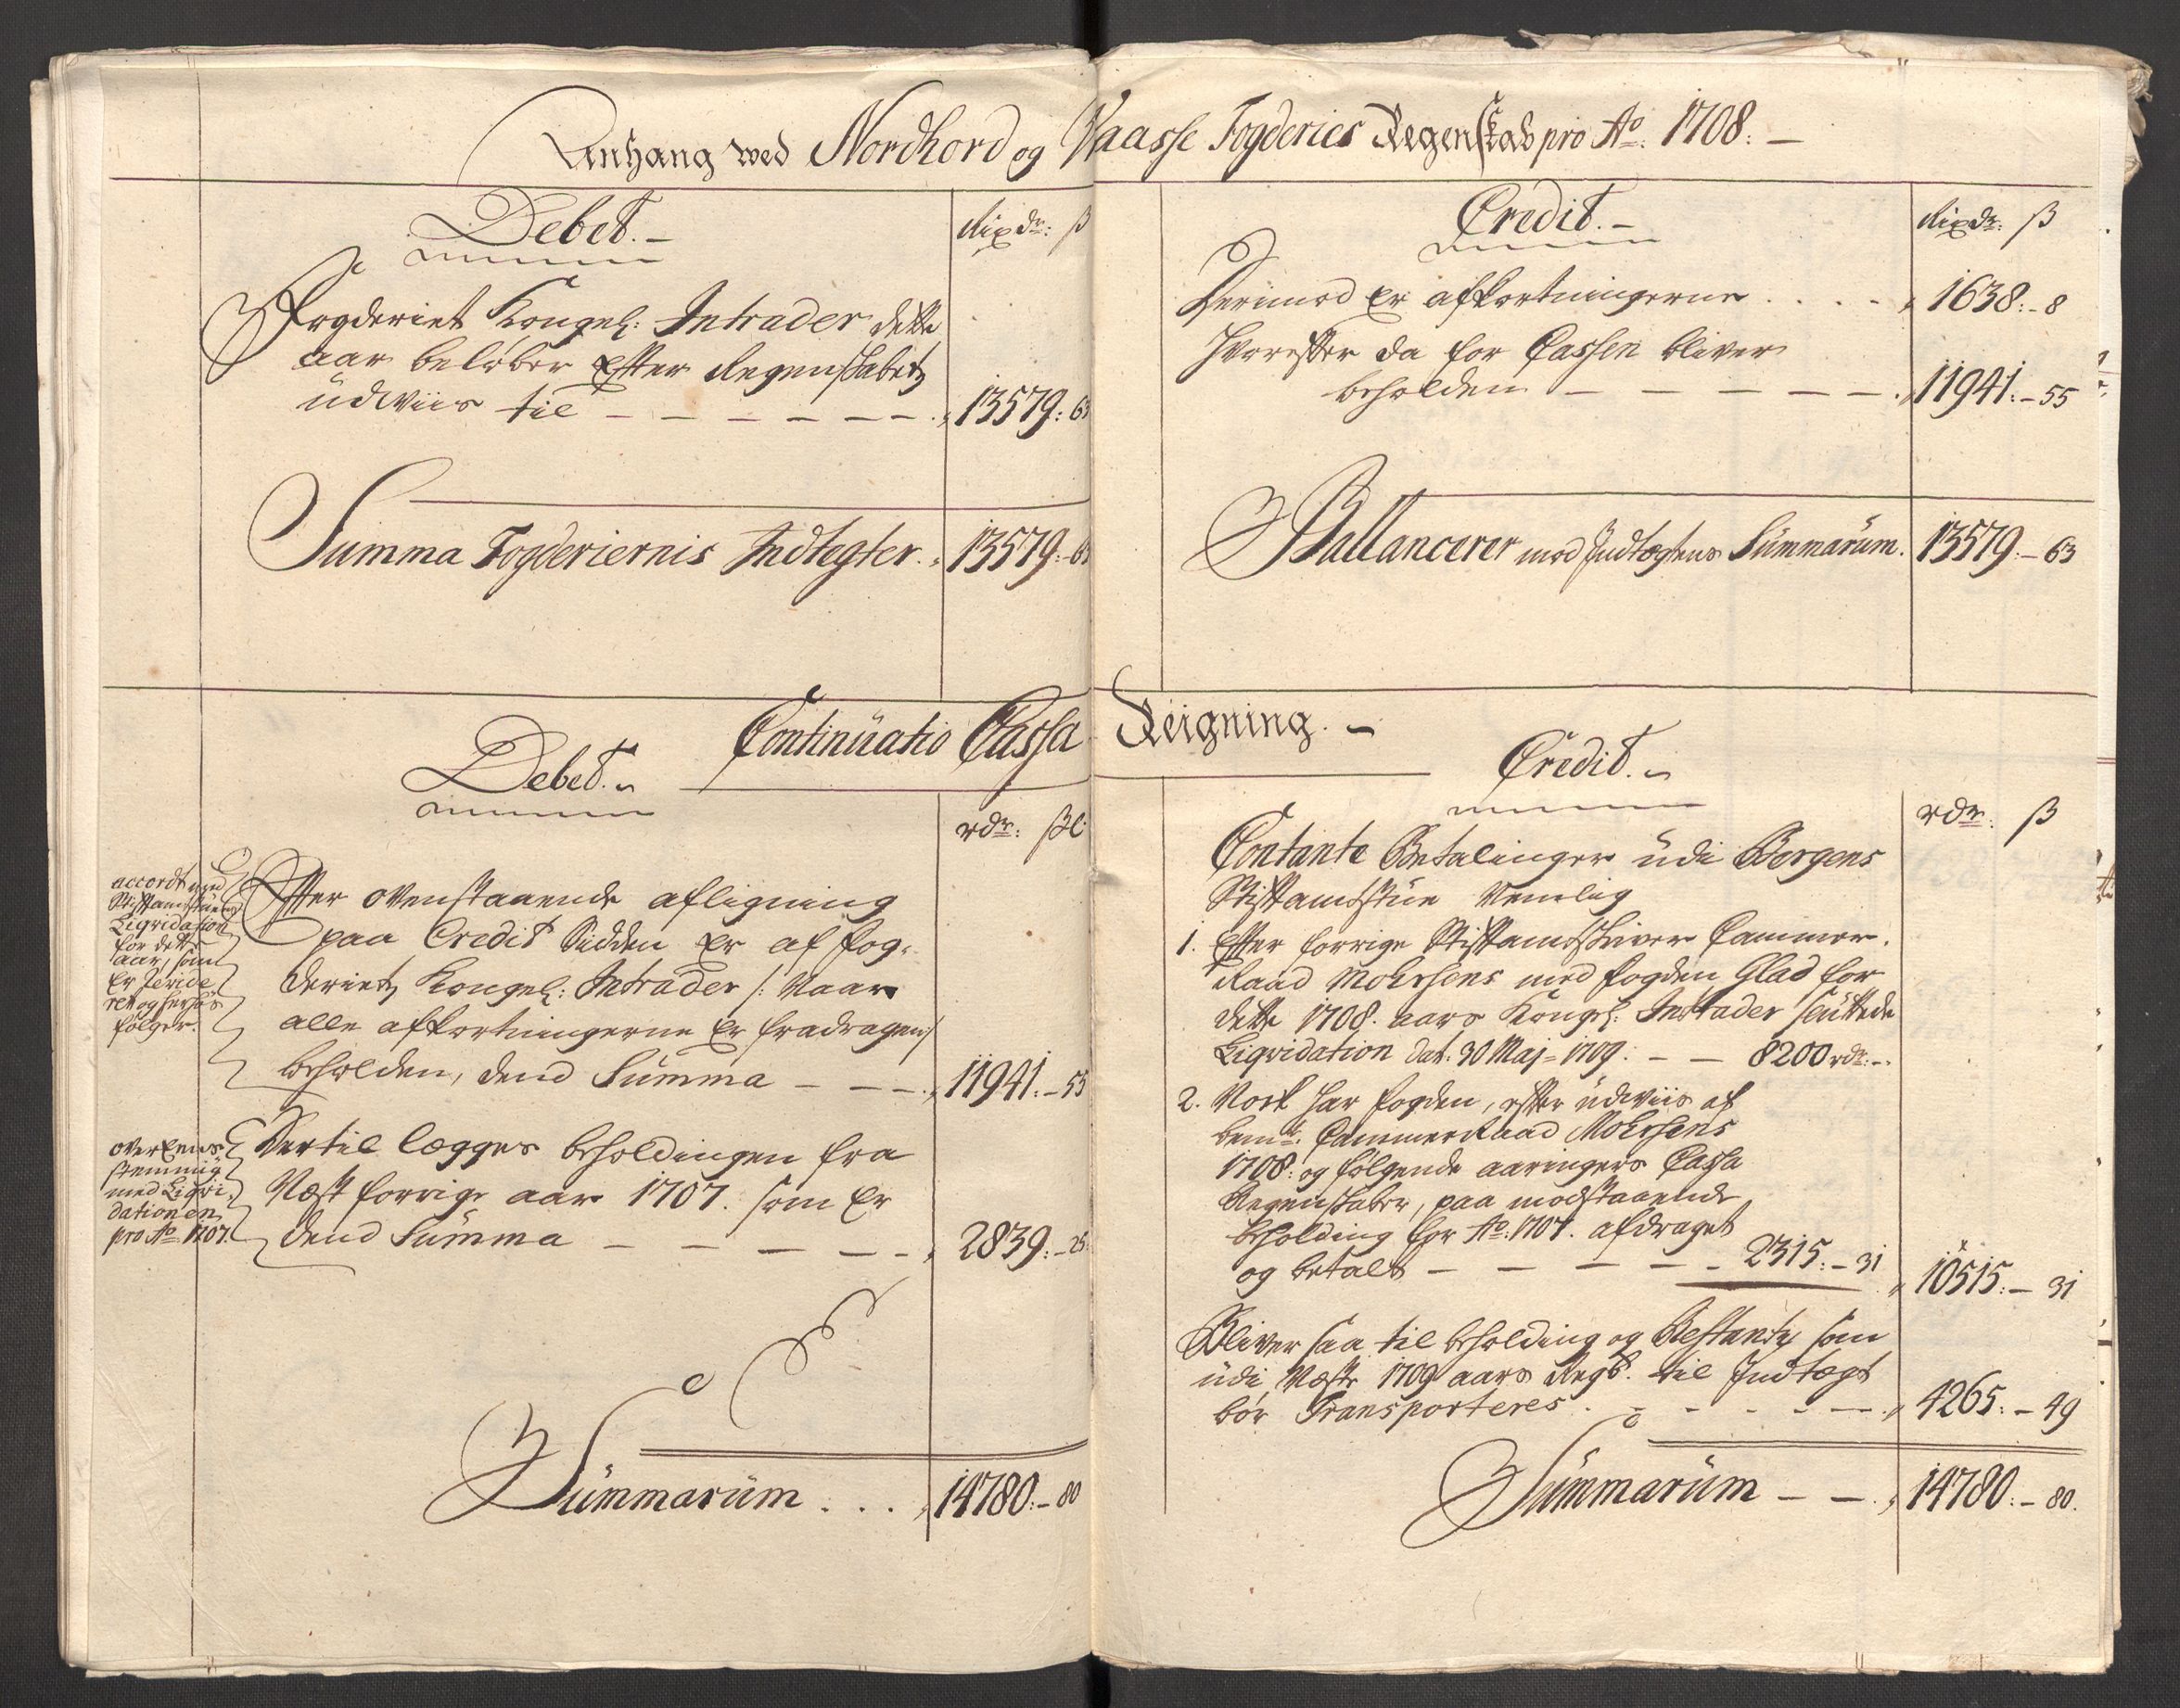 Anhang wed Nordhord og Waasse Fogderies Regenskab pro Ao. 1708. –
Debet. –
Rixdr: ß
Fogderiet Kongel: Intrader dette
aar beløber efter Regenskabets
udwiis til – – – – – – 13579: 63
Summa Fogderiernis Indtegter. 13579: – 63
Credit. –
Rixdr: ß
Derimod er afkortningerne . . . . 1638: – 8
Hvorefter da for Cassen bliver
beholden – – – – – – 11941: – 55
Ballancerer med Indtægtens Summarum. 13579. – 63
Continuatio Cassa Reigning. –
Debet. –
rdr: ßl
accordt med
Stiftamtstuens
Liqvidation
for dette
aar, som
er
ret og
følger.
Efter ovenstaaende afligning
paa Credit Sidden er af fog-
deriets Kongel: Intrader /: Naar
alle afkortningerne er fradragen /
beholden, dend Summa – – – 11941. – 55
overeens-
stemmig
med Liqvi-
dationen
pro Ao 1707.
Dertil lægges beholdingen fra
Nest forrige aar 1707. som er
dend Summa – – – – – 2839: – 25
Summarum . . . 14780: – 80
Credit. –
rdr: ß
Contante Betalinger udi Bergens
Stiftamtstue Nemlig
1. Efter forrige Stiftamtskriver Cammer-
Raad Mohrsens med fogden Glad for
dette 1708. aars Kongel: Intrader sluttede
Liqvidation dat: 30 Maj 1709: – – 8200 rdr: –
2. Nock har fogden, efter udwiis af
bemte. Cammer Raad Mohrsens
1708: og følgende aaringers Cassa
Regenskaber, paa modstaaende
beholding for Ao. 1707. afdraget
og betalt – – – – – 2315: – 31 10515: – 31
Bliver saa til beholding og Restantz som
udi Neste 1709 aars Regb. til Indtægt
bør Transporteres . – – – – – 4265: – 49
Summarum – – 14780: – 80.